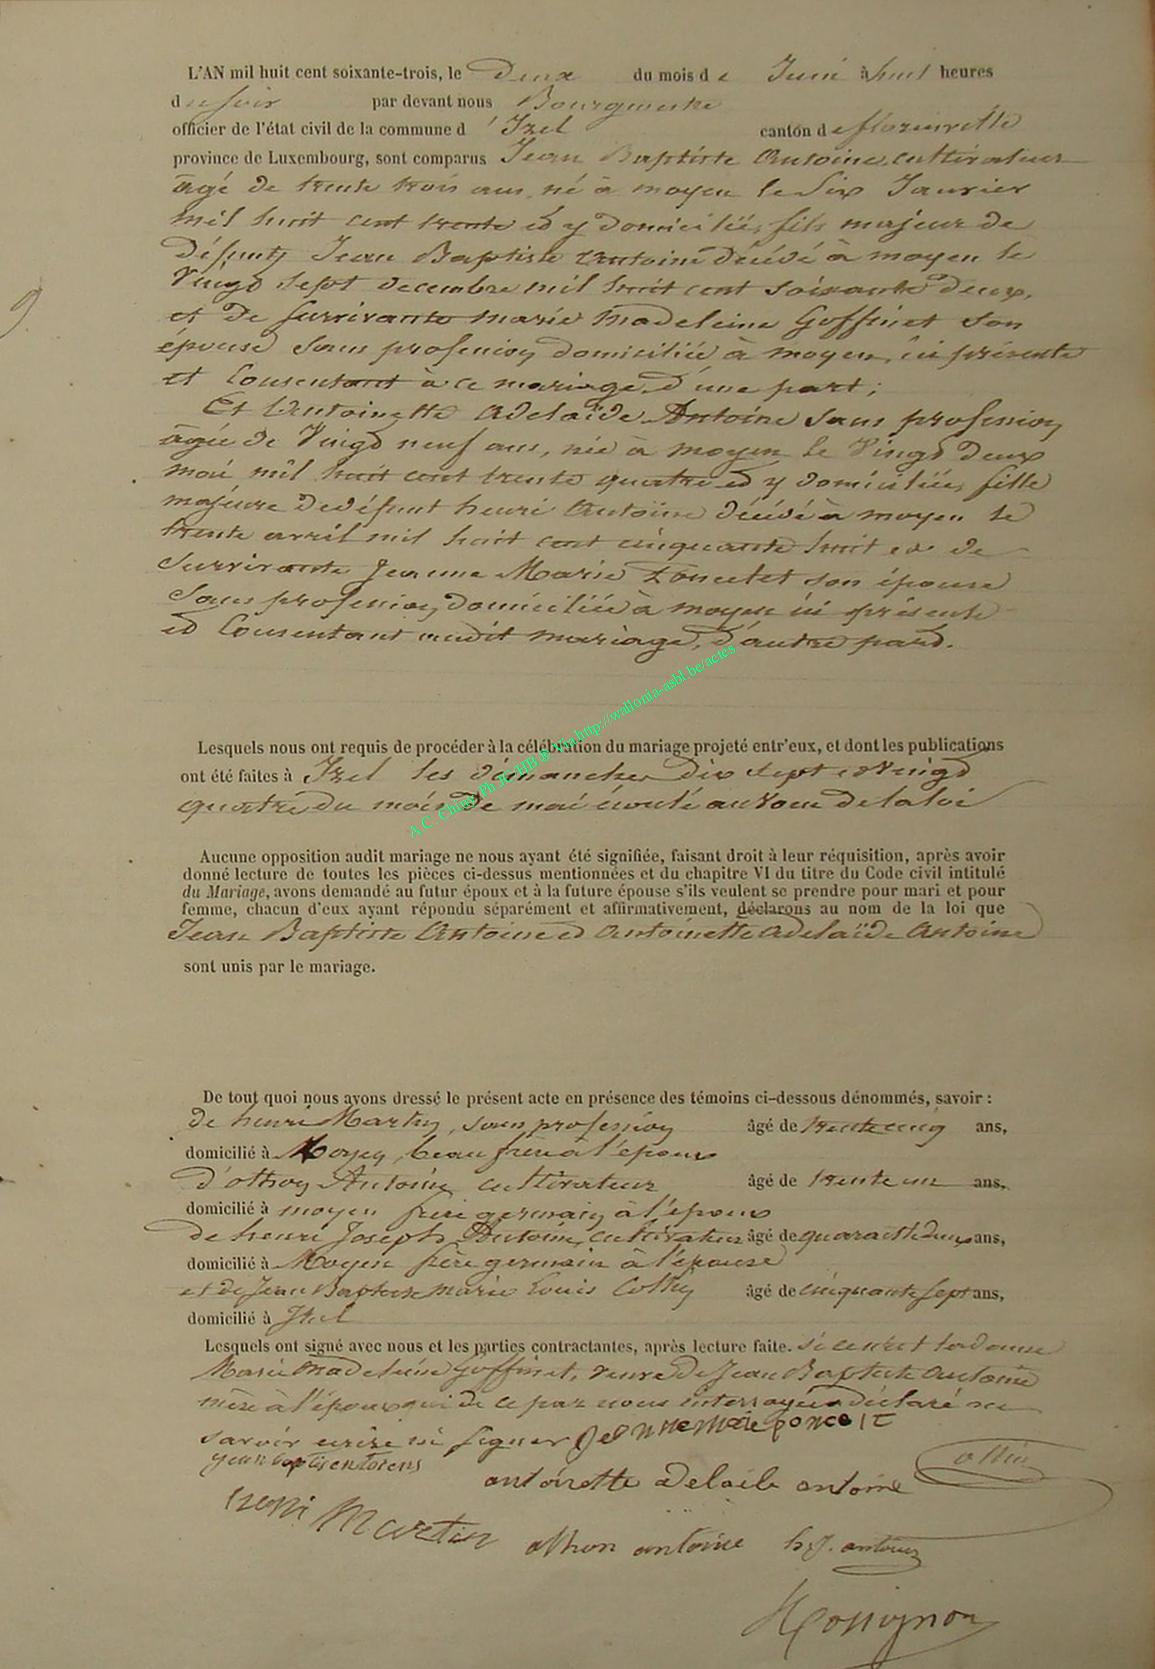 L'AN mil huit cent soixante-trois, le Deux du mois de Juin à huit heures
du soir par devant nous Bourgmestre
officier de l'état civil de la commune d'Izel canton de florenville
province de Luxembourg, sont comparus Jean Baptiste Antoine, cultivateur
âgé de trente trois ans, né à moyen le Six Janvier
mil huit cent trente et y domicilié, fils majeur de
Défunt Jean Baptiste Antoine décédé à moyen le
Vingt Sept decembre mil huit cent soixante deux,
et de Survivante marie Madeleine Goffinet son
épouse Sans profession domiciliée à moyen, ici présente
et Consentant à ce mariage, d'une part;
Et Antoinette Adelaïde Antoine Sans profession
âgée de Vingt neuf ans, née à moyen le Vingt Deux
mai mil huit cent trente quatre et y domiciliée, fille
majeure de défunt henri Antoine décédé à moyen le
trente avril mil huit cent cinquante huit et de
Survivante Jeanne Marie Poncelet son épouse
Sans profession, domiciliée à moyen ici présente
et Consentant audit mariage, d'autre part.
Lesquels nous ont requis de procéder à la célébration du mariage projeté entr'eux, et dont les publications
ont été faites à Izel les dimanches Dix sept et Vingt
quatre du mois de mai écoulé au vœu de la loi
Aucune opposition audit mariage ne nous ayant été signifiée, faisant droit à leur réquisition, après avoir
donné lecture de toutes les pièces ci-dessus mentionnées et du chapitre VI du titre du Code civil intitulé
du Mariage, avons demandé au futur époux et à la future épouse s'ils veulent se prendre pour mari et pour
femme, chacun d'eux ayant répondu séparément et affirmativement, déclarons au nom de la loi que
Jean Baptiste Antoine et Antoinette Adelaïde Antoine
sont unis par le mariage.
De tout quoi nous avons dressé le présent acte en présence des témoins ci-dessous dénommés, savoir :
de henri Martin, sans profession âgé de trente cinq ans,
domicilié à Moyen, beau frère à l'époux
d'othon Antoine cultivateur âgé de trente un ans,
domicilié à moyen frère germain à l'époux
de henri Joseph Antoine, cultivateur âgé de quarante deux ans,
domicilié à Moyen frère germain à l'épouse
et de Jean Baptiste marie Louis Collin âgé de cinquante sept ans,
domicilié à Izel
Lesquels ont signé avec nous et les parties contractantes, après lecture faite. si ce n'est la dame
Marie Madeleine Goffinet, veuve de Jean Baptiste Antoine
mère à l'époux qui de ce par nous interrogée a déclaré ne
savoir écrire ni signer Jeanne Marie poncelt
antoinette adelaide antoine
henri Martin othon antoine h. J. antoine
A.C. Chiny Ph.R. HB.® Via http://wallonia-asbl.be/actes